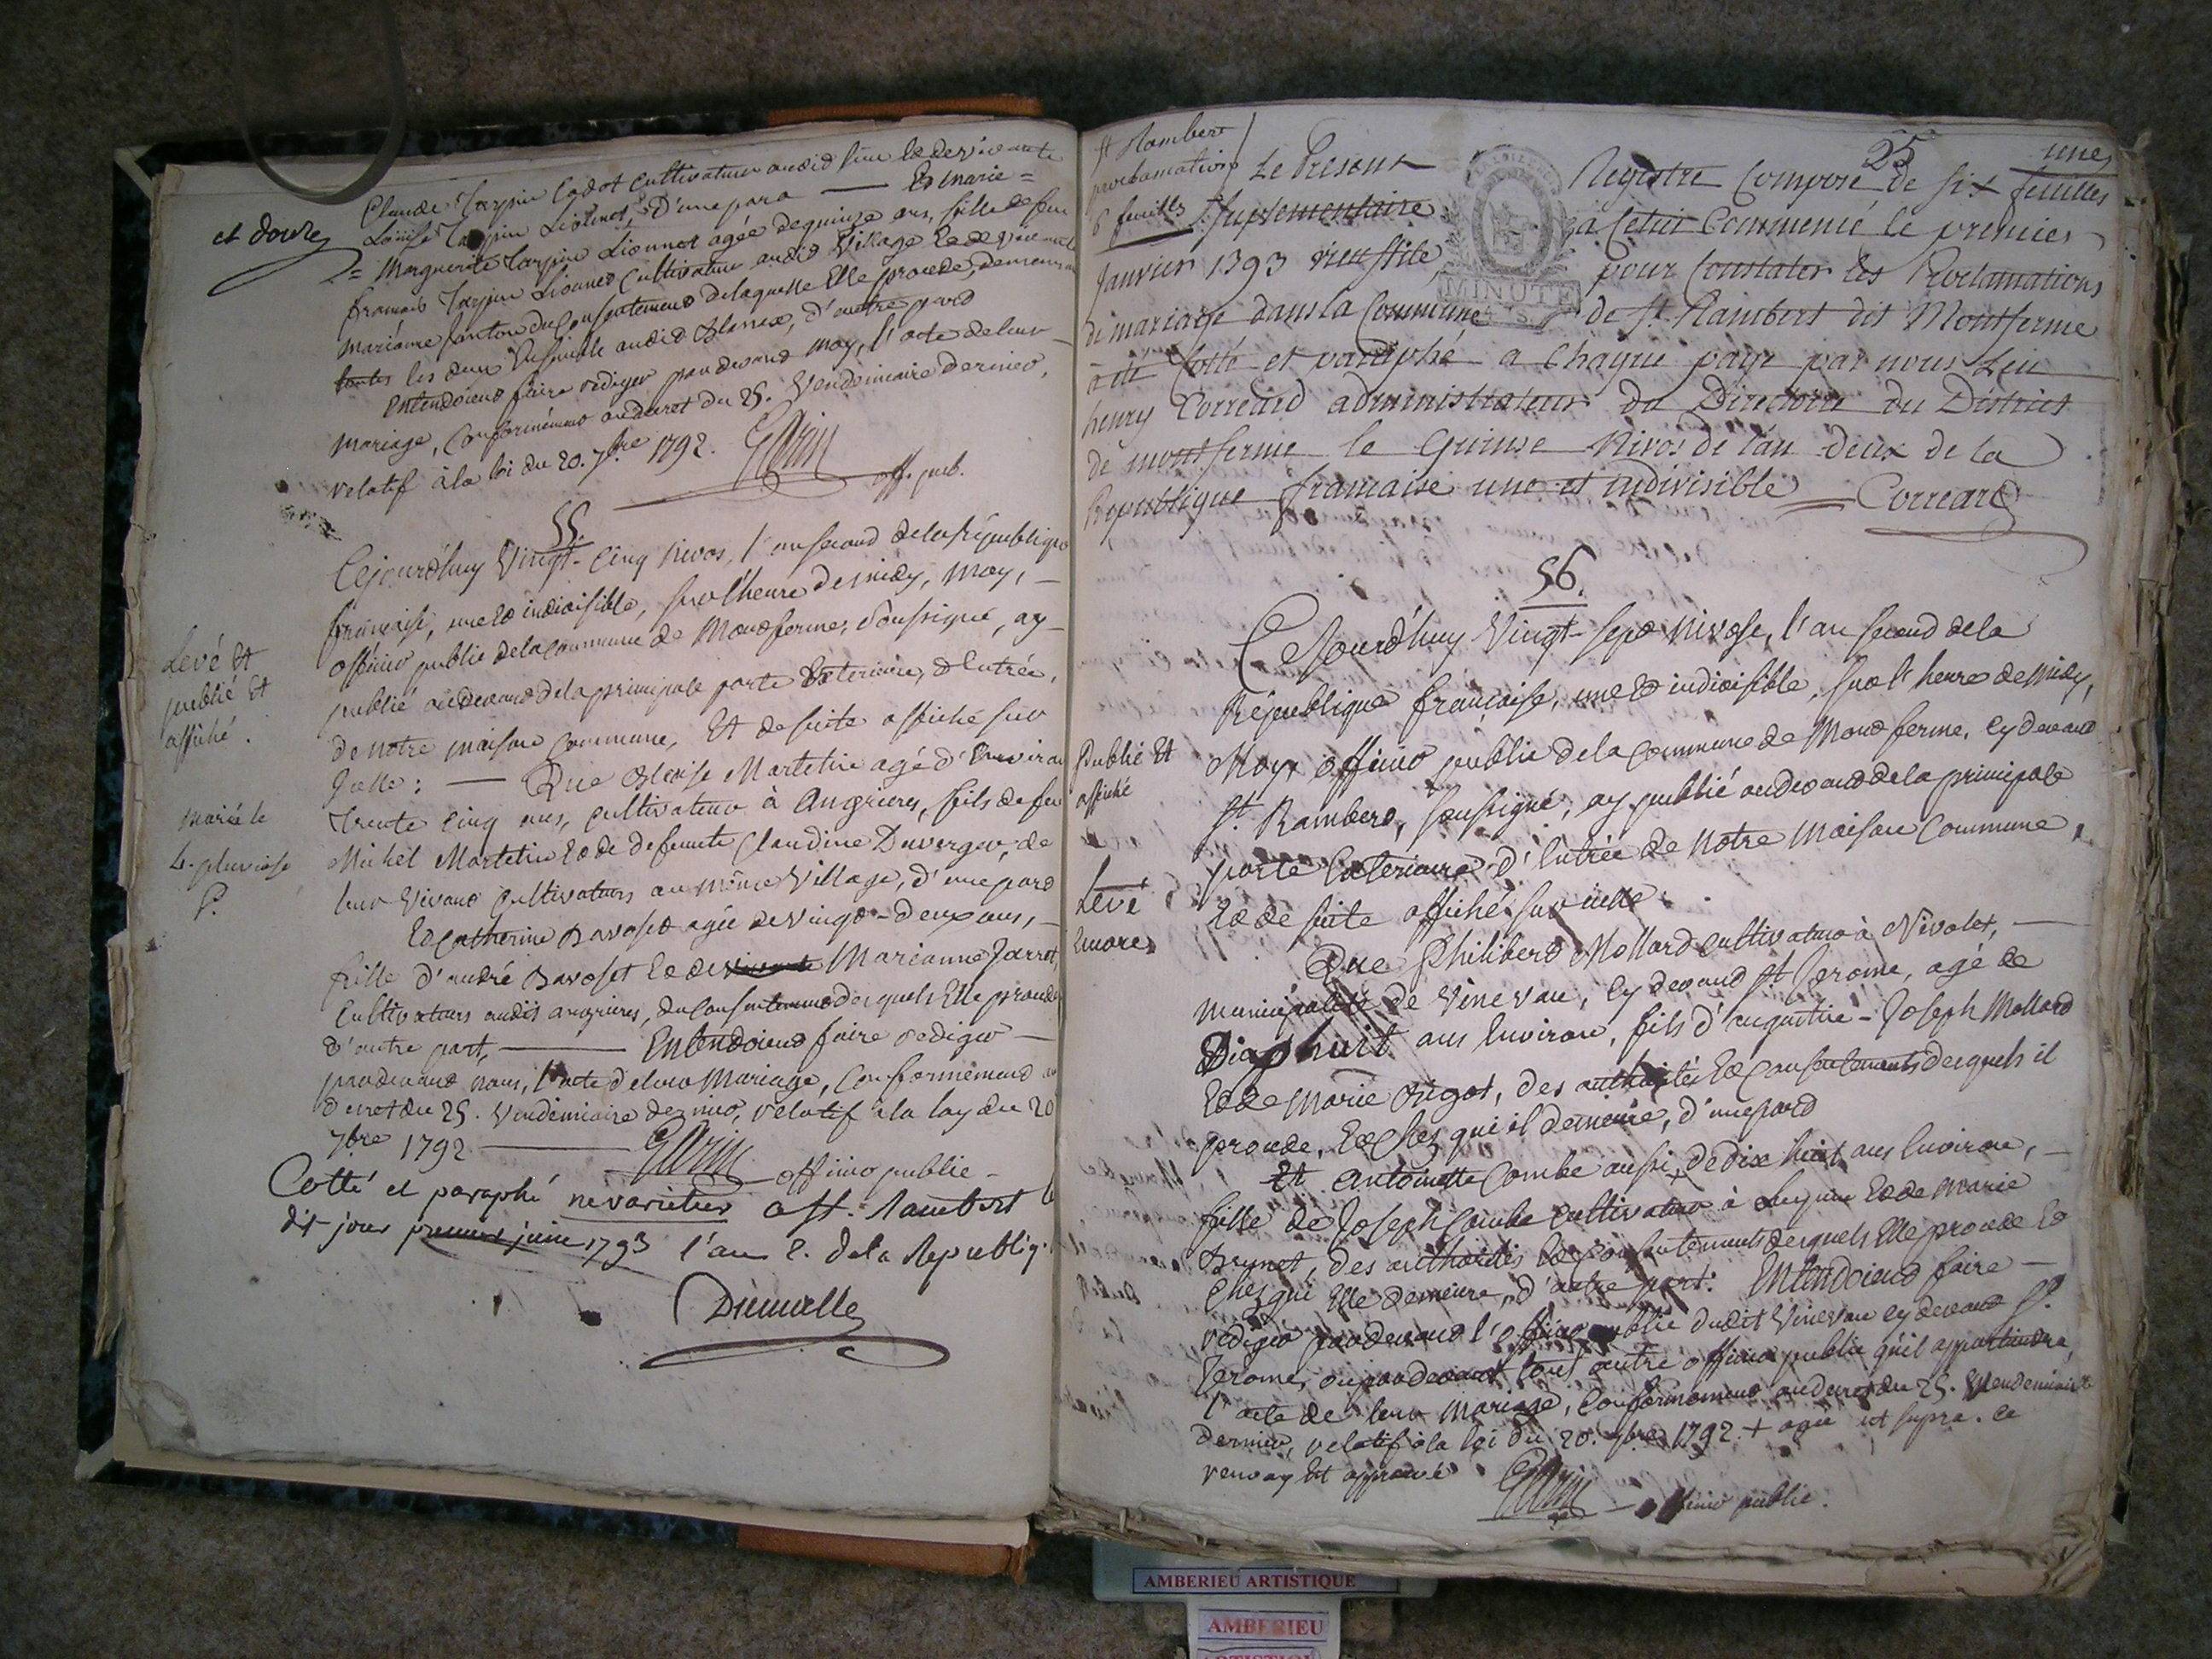 Claude Tarpin Cadot Cultivateur audit lieu et de vivante
Louise Tarpin Lionnet, D'une part — Et Marie =
et douze
= Marguerite Tarpin Lionnet agée de quinze ans, fille de feu
francois Tarpin Lionnet Cultivateur audit Village et de vivante
Mariane fanton du Consentement de laquelle Elle procede, demeurant
toutes les deux Ensemble audit d'autre part
Entendoient faire rediger pardevant moy, l'acte de leur
Mariage, Conformément au decret du 25. Vendemiaire dernier,
relatif à la loi du 20. 7bre 1792.
off. pub.
55.
Cejourd'huy Vingt-Cinq Nivos, l'an second de la République
francaise, une et indivisible, sur l'heure de midy, Moy,
officier public de la Commune de Montferme, Soussigné, ay
Levé Et
publié Et
affiché.
publié audevant de la principale porte Exterieure, d'Entrée,
de notre maison Commune, Et de suite affiché sur
Icelle : — Que Martetin agé d'Environ
Trente Cinq ans, cultivateur à Angrieres, fils de feu
Marié le
4. pluviose
Michel Martetin et de defunte Claudine Duverger, de
leur Vivant Cultivateurs au même Village, d'une part
Et Catherine Savoset agée de Vingt-deux ans, —
fille d'andré Savoset et de vivante Marianne Jarret,
Cultivateurs audit angrieres, du Consentement desquels Elle procede
d'autre part, — Entendoient faire rediger —
pardevant nous, l'acte de leur Mariage, Conformement au
decret du 25. Vendémiaire dernier, relatif à la loy du 20
7bre 1792 — officier public -
Cotté et paraphé ne varietur a St. Rambert le
dit jour premier juin 1793 l'an 2. de la Republiq.
Diemelle
25
une
St Rambert
proclamations
6 feuilles
Le Present Registre Composé de six feuilles
Suplementaire a Celui Commencé le premier
Janvier 1793 vieux stile, pour Constater les Proclamations
MINUTE
de mariage dans la Commune de St. Rambert dit Montferme
a été Cotté et paraphé a Chaque page par nous Luc
henry Correard administrateur du Directoire du District
de montferme le Quinse Nivos de l'an deux de la
Republique francaise une et indivisible — Correard
56.
Cejourd'huy Vingt-sept Nivose, l'an second de la
République francaise, une et indivisible, sur l'heure de midy,
Publié Et
affiché
Moy officier public de la Commune de Montferme, Cy devant
St. Rambert, Soussigné, ay publié audevant de la principale
porte Exterieure d'Entrée de notre Maison Commune,
Levé
Encore
Et de suite affiché sur icelle.
Que Philibert Mollard cultivateur à Nivolet, —
Municipalité de Vinevau, Cy devant St. Jerome, agé de
Dix huit ans Environ, fils d'augustin-Joseph Mollard
Et de Marie Rigot, des authorités Et Consentements desquels il
procede, Et Chez qui il demeure, d'une part
Et Antoinette Combe aussi + de dix huit ans Environ, —
fille de Joseph Combe Cultivateur à Leymen Et de Marie
Brunet, des authorités Et Consentements desquels Elle procede Et
Chez qui Elle demeure, d'autre part. Entendoient faire —
rediger pardevant l'officier public dudit Vinevau Cy devant St.
Jerome, ou pardevant tout autre officier public qu'il appartiendra,
l'acte de leur Mariage, Conformement au decret du 25. Vendemiaire
dernier, relatif à la loi du 20. 7bre 1792. + agée ut supra. Ce
renvoy Est approuvé
officier public.
AMBERIEU ARTISTIQUE
AMBERIEU
ARTISTIQUE